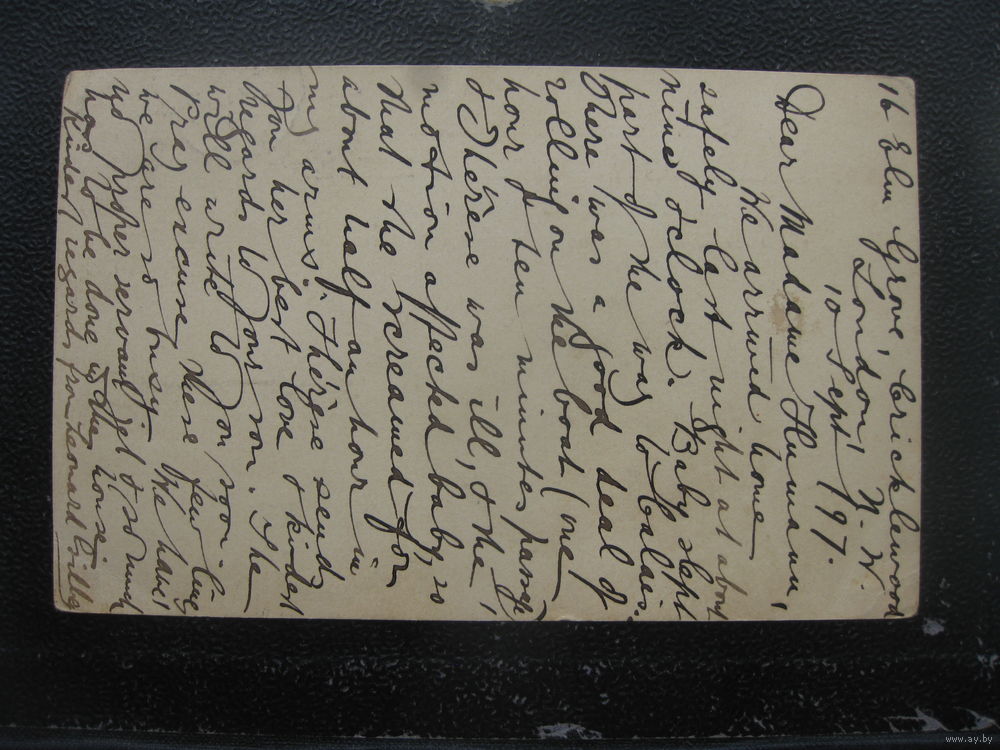 16 Elm Grove, Cricklewood
London, N.W.
10 Sept /97.
Dear Madame Humann,
We arrived home
safely last night at about
nine o'clock. Baby slept
part of the way to Calais.
There was a good deal of
rolling on the boat (one
hour & ten minutes passage)
& Thérèse was ill, & the
motion affected baby, so
that she screamed for
about half an hour in
my arms. Thérèse sends
you her best love & kindest
regards to your son. She
will write to you soon.
Pray excuse these few lines
we are so busy. We have
no proper servant yet & so much
has to be done in the house.
Kindest regards from Leonard
www.ay.by